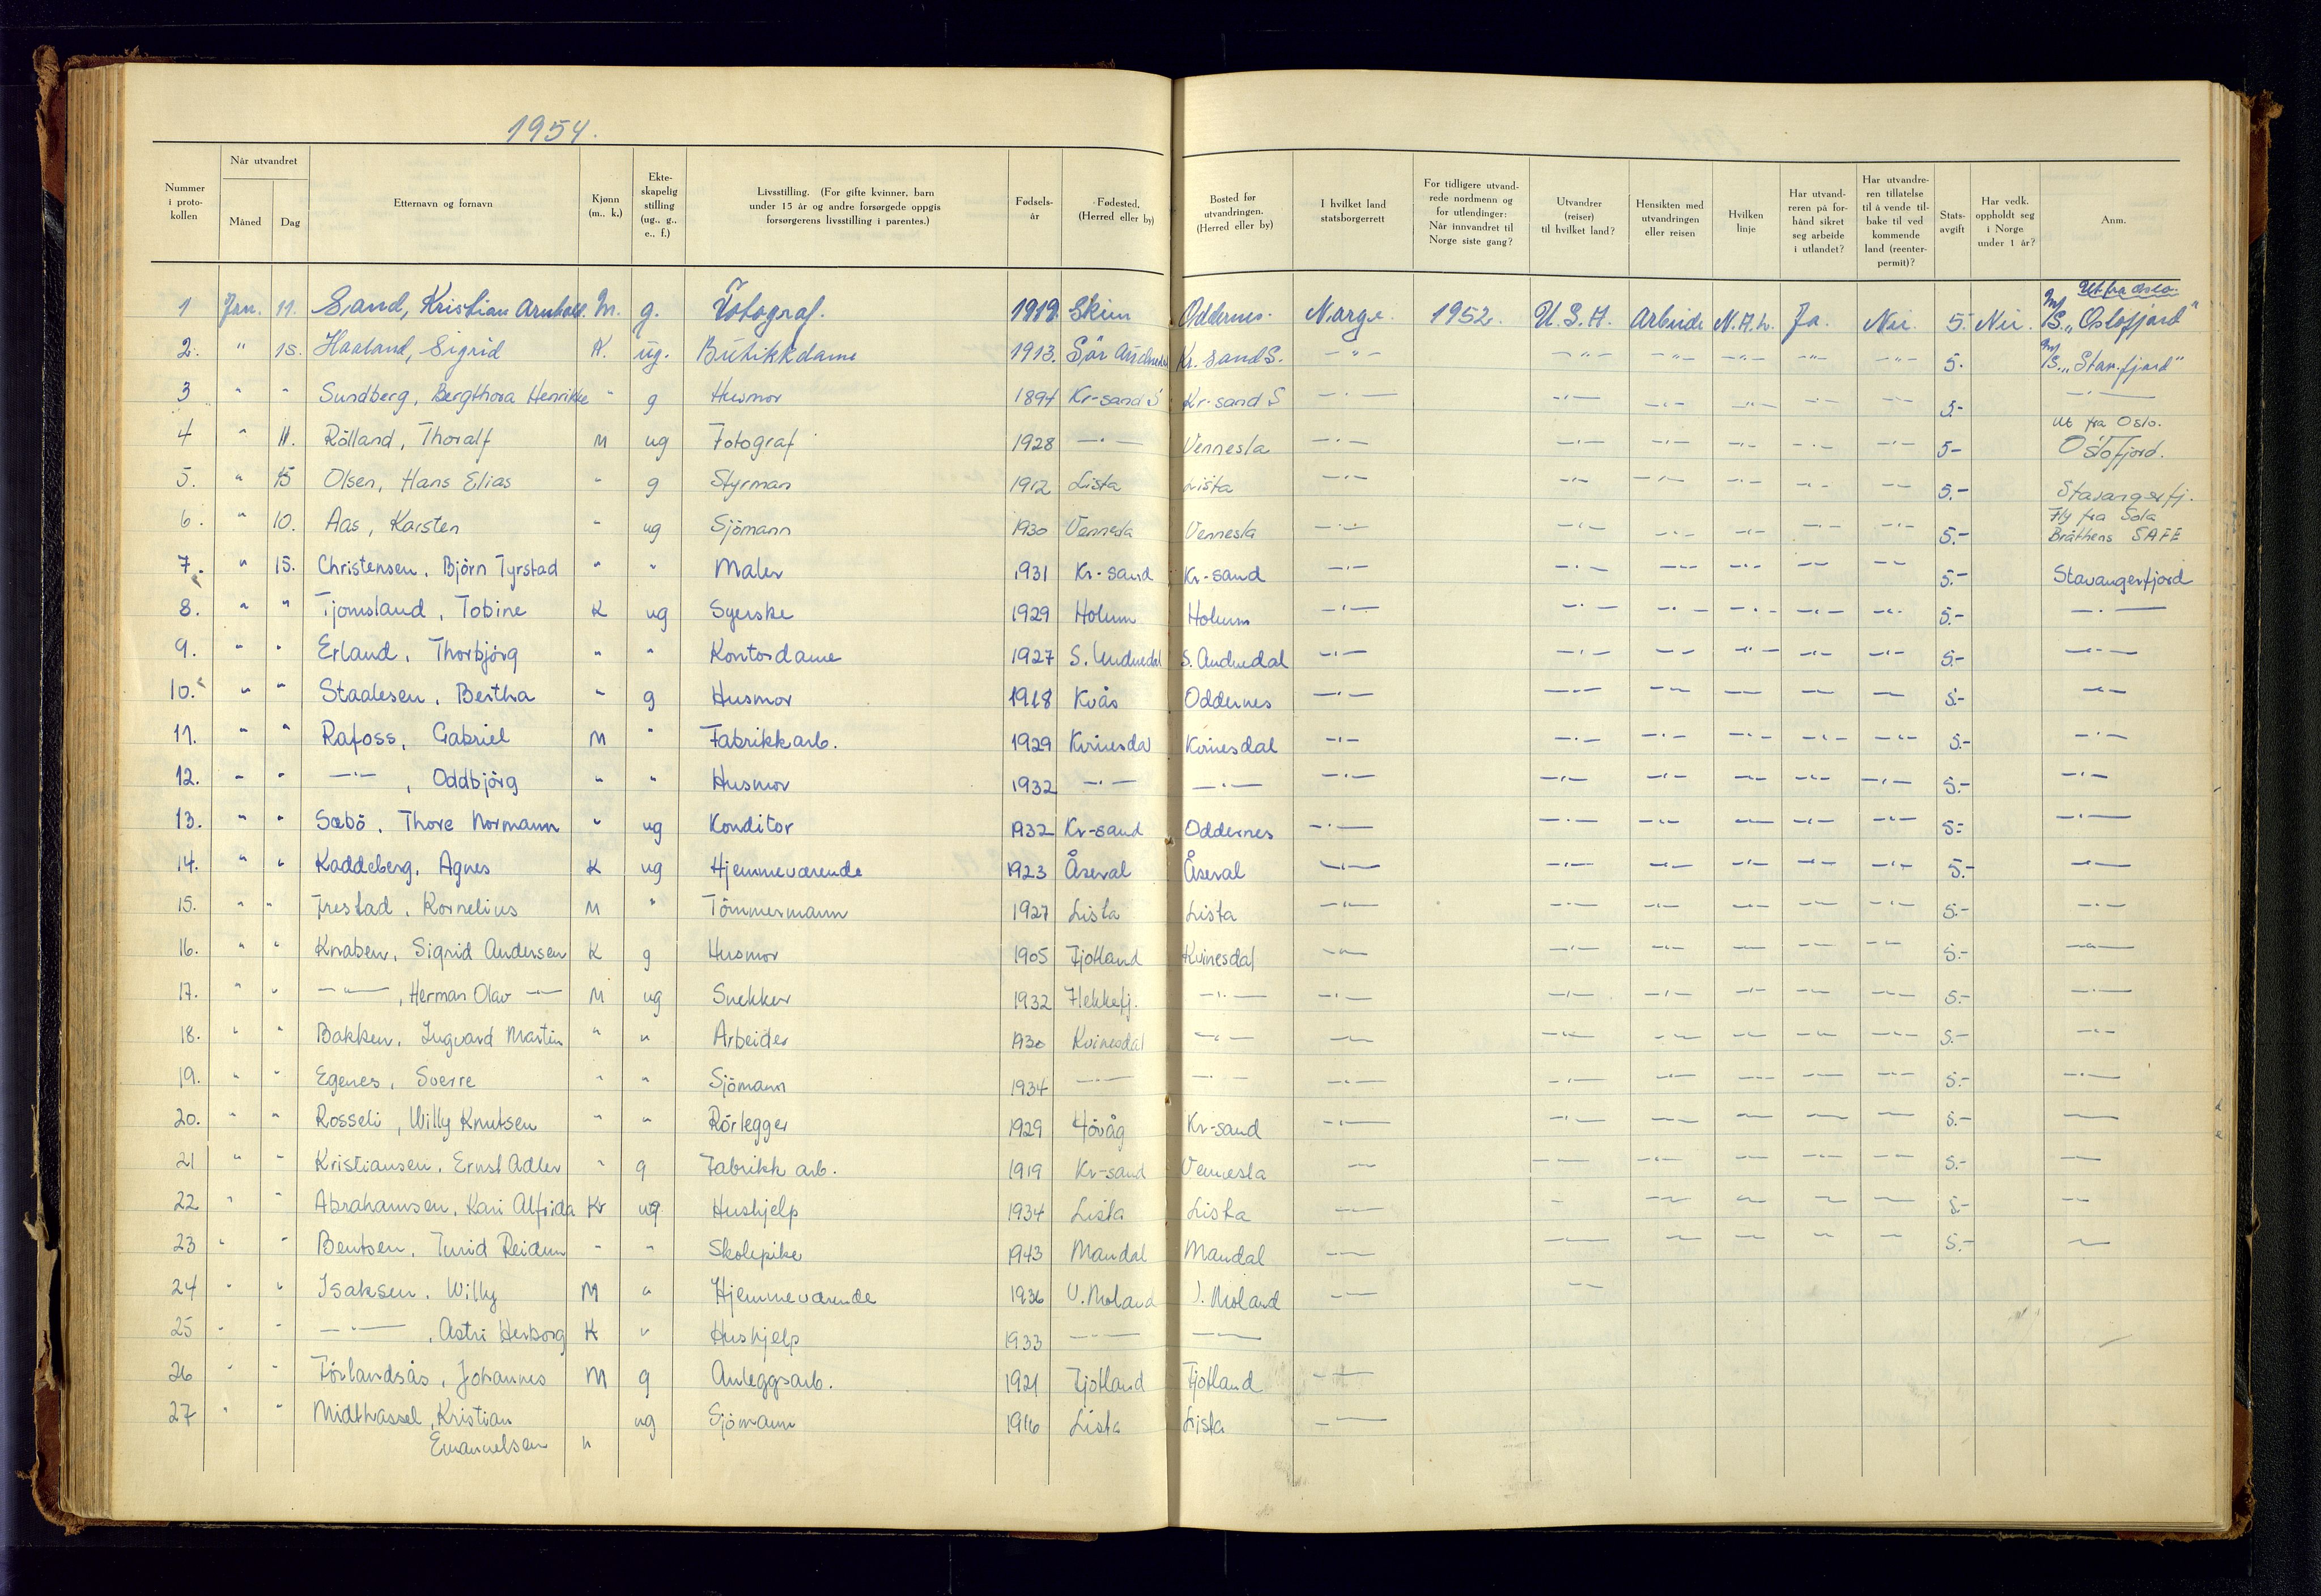 1954.
Nummer i proto- kollen | Når utvandret Måned Dag | Etternavn og fornavn | Kjønn (m., k.) | Ekte- skapelig stilling (ug., g., e., f.) | Livsstilling. (For gifte kvinner, barn under 15 år og andre forsørgede oppgis forsørgerens livsstilling i parentes.) | Fødsels- år | Fødested. (Herred eller by) | Bosted før utvandringen. (Herred eller by) | I hvilket land statsborgerrett | For tidligere utvand- rede nordmenn og for utlendinger: Når innvandret til Norge siste gang? | Utvandrer (reiser) til hvilket land? | Hensikten med utvandringen eller reisen | Hvilken linje | Har utvand- reren på for- hånd sikret seg arbeide i utlandet? | Har utvandre- ren tillatelse til å vende til- bake til ved kommende land (reenter- permit)? | Stats- avgift | Har vedk. oppholdt seg i Norge under 1 år? | Anm.
1 Jan. 11. Sand, Kristian M. g. Fotograf. 1919 Skien Oddernes. Norge 1952. U.S.A. Arbeide N.A.L. Ja. Nei. 5.- Nei. Ut fra Oslo. M/S. „Oslofjord"
2. " 15. Haaland, Sigrid K. ug. Butikkdame 1913. Sør Audnedal Kr. sand S. -"- -"- -"- -"- -"- -"- 5.- M/S. „Stav.fjord"
3 " " Sundberg, Bergthora Henrikke " g Husmor 1894 Kr-sand S Kr-sand S -"- -"- -"- -"- -"- -"- 5.- -"-
4 " 11. Rölland, Thoralf M ug Fotograf 1928 -"- Vennesla -"- -"- -"- -"- -"- -"- 5- Ut fra Oslo. Oslofjord.
5. " 15 Olsen, Hans Elias " g Styrman 1912 Lista Lista -"- -"- -"- -"- -"- -"- 5.- Stavangerfj.
6. " 10. Aas, Karsten " ug Sjömann 1930 Vennesla Vennesla -"- -"- -"- -"- -"- -"- 5.- Fly fra Sola Bråthens SAFE
7. " 15. Christensen, Björn Tyrstad " " Maler 1931 Kr-sand Kr-sand -"- -"- -"- -"- -"- -"- 5.- Stavangerfjord
8. " " Tjomsland, Tobine K ug Syerske 1929 Holum Holum -"- -"- -"- -"- -"- -"- 5.- -"-
9. " " Erland, Thorbjörg " " Kontordame 1927 S. Audnedal S. Audnedal -"- -"- -"- -"- -"- -"- 5.- -"-
10. " " Staalesen, Bertha " g Husmor 1918 Kvås Oddernes -"- -"- -"- -"- -"- - 5.- -"-
11. " " Rafoss, Gabriel M " Fabrikkarb. 1929 Kvinesdal Kvinesdal -"- -"- -"- -"- -"- -"- 5.- -"-
12. " " -"-, Oddbjörg " " Husmor 1932 -"- -"- -"- -"- -"- -"- -"- -"- 5.- -"-
13. " " Sæbö, Thore Normann " ug Konditor 1932 Kr-sand Oddernes -"- -"- -"- -"- -"- -"- 5.- -"-
14. " " Kaddeberg, Agnes K ug Hjemmeværende 1923 Åseral Åseral -"- -"- -"- -"- -"- -"- 5.- -"-
15. " " Frestad, Kornelius M " Tömmermann 1927 Lista Lista -"- -"- -"- -"- -"- -"- 5.- -"-
16. " " Knaben, Sigrid Andersen K g Husmor 1905 Fjotland Kvinesdal -"- -"- -"- -"- -"- -"- 5.- -"-
17. " " -"-, Herman Olav -"- M ug Snekker 1932 Flekkefj. -"- -"- -"- -"- -"- -"- -"- 5.- -"-
18. " " Bakken, Ingvard Martin " " Arbeider 1930 Kvinesdal -"- -"- -"- -"- -"- -"- -"- 5.- -"-
19. " " Egenes, Sverre " " Sjömann 1934 -"- -"- -"- -"- -"- -"- -"- -"- 5.- -"-
20. " " Rosseli, Willy Knutsen " " Rörlegger 1929 Hövåg Kr-sand -"- -"- -"- -"- -"- -"- 5.- -"-
21 " " Kristiansen, Ernst Adler " g Fabrikk arb. 1919 Kr-sand Vennesla -"- -"- -"- -"- -"- -"- 5.- -"-
22 " " Abrahamsen, Kari Alfrida K ug Hushjelp 1934 Lista Lista -"- - -"- -"- -"- -"- 5.- -"-
23 " " Bentsen, Turid Reidun " " Skolepike 1943 Mandal Mandal -"- -"- -"- -"- - - 5.- -"-
24 " " Isaksen, Willy M " Hjemmeværende 1936 V. Moland V. Moland -"- -"-
25 " " -"-, Astri Herborg K " Hushjelp 1933 -"- -"-
26 " " Förlandsås, Johannes M g Anleggsarb. 1921 Fjotland Fjotland -"-
27 " " Midthassel, Kristian ug Sjömann 1916 Lista Lista -"-
Emanuelsen "